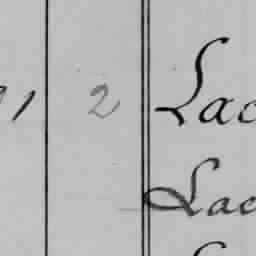 1 2 Lac
Lac